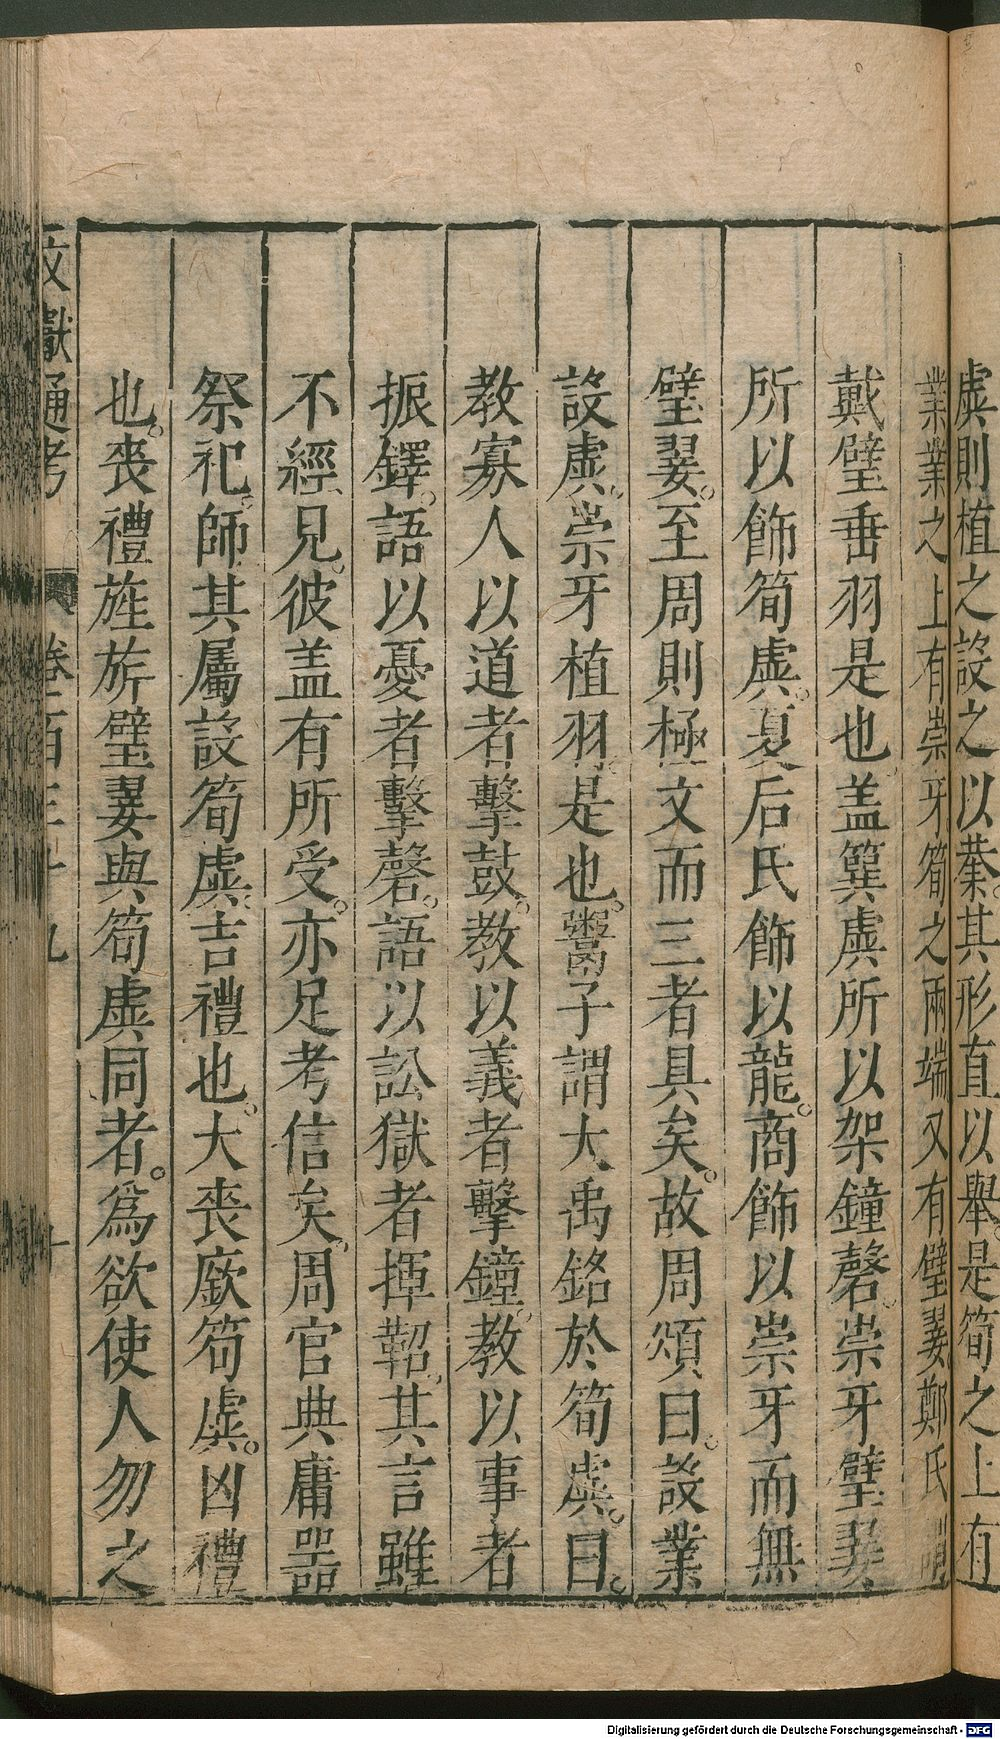 虡則植之設之以業其形直以舉是筍之上有
業業之上有崇牙筍之兩端又有璧翣鄭氏謂
戴璧垂羽是也盖簨虡所以架鐘磬崇牙璧翣
所以飾筍虡夏后氏飾以龍商飾以崇牙而無
璧翣至周則極文而三者具矣故周頌曰設業
設虡崇牙植羽是也鬻子謂大禹銘於筍虡曰
教寡人以道者擊鼓教以義者擊鐘教以事者
振鐸語以憂者擊磬語以訟獄者揮鞀其言雖
不經見彼盖有所受亦足考信矣周官典庸噐
祭祀師其屬設筍虡吉禮也大喪廞笱虡凶禮
也喪禮旌旂璧翣與笱虡同者爲欲使人勿之
文獻通考 卷一百三十九 十
Digitalisierung gefördert durch die Deutsche Forschungsgemeinschaft - DFG